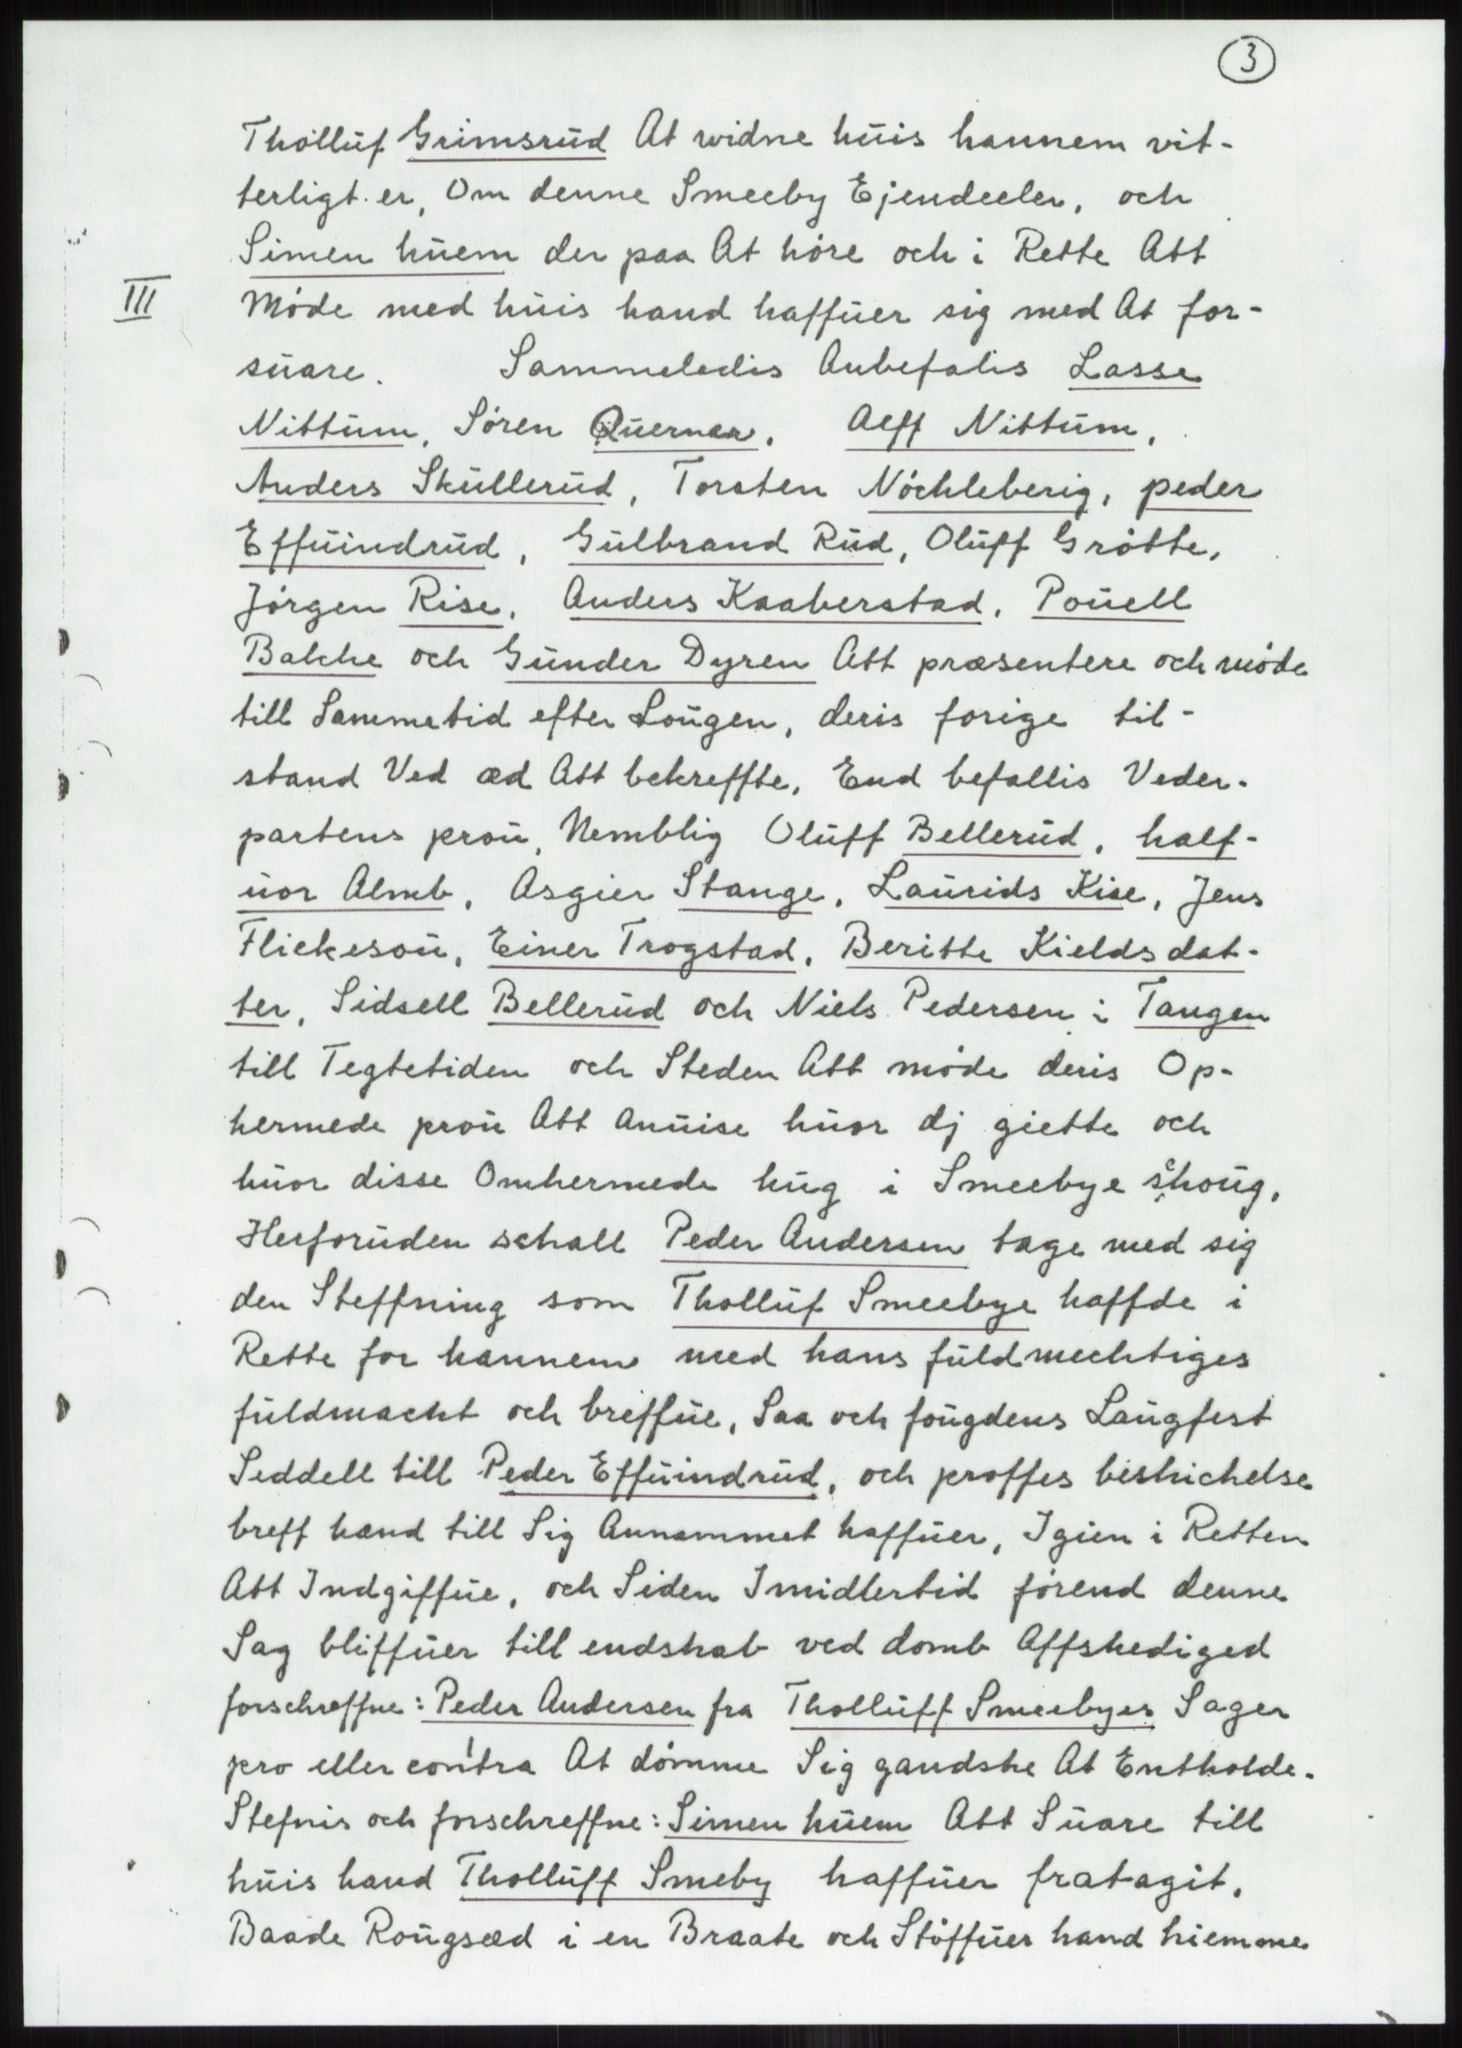 3
Thólluf Grimsrud At widne huis hannem vit-
terligt er, Om denne Smeeby Ejendeeler, och
Simen huem der paa At hóre och i Rette Att
III
Móde med huis hand haffuer sig med At for-
suare. Sammeledis Anbefalis Lasse
Nittum, Sóren Querner, Aeff Nittum,
Anders Skullerud, Torsten Nóchleberig, peder
Effuindrud, Gulbrand Rud, Oluff Grótte,
Jórgen Rise, Anders Kaaberstad, Pouell
Balche och Gunder Dyren Att præsentere och móde
till Sammetid efter Lougen, deris forige til-
stand Ved æd Att bekreffte, End befallis Veder-
partens prou, Nemblig Oluff Bellerud, half-
uor Almb, Asgier Stange, Laurids Kise, Jens
Flickesoū, Einer Trogstad, Beritte Kieldsdat-
ter, Sidsell Bellerud och Niels Pedersen i Tangen
till Tegtetiden och Steden Att móde deris Op-
hermede prou Att anuise huor dj giette och
huor disse Omhermede hug i Smeebye skoug,
Herforuden schall Peder Andersen tage med sig
den Steffning som Tholluf Smeebye haffde i
Rette for hannem med hans fuldmechtiges
fuldmacht och breffue, Saa och fougdens Laugfest
Seddell till Peder Effuindrud, och proffes beskichelse
breff hand till Sig Annammet haffuer, Igien i Retten
Att Indgiffue, och Siden Imidlertid fórend denne
Sag bliffuer till endskab ved domb Affskediged
forschreffne: Peder Andersen fra Tholluff Smeebyes Sager
pro eller contra At dómme Sig gandske At Entholde.
Stefnis och forschreffne: Simen huem Att Suare till
huis hand Tholluff Smeby haffuer fratagit,
Baade Rougsæd i en Braate och Stóffuer hand hiemme